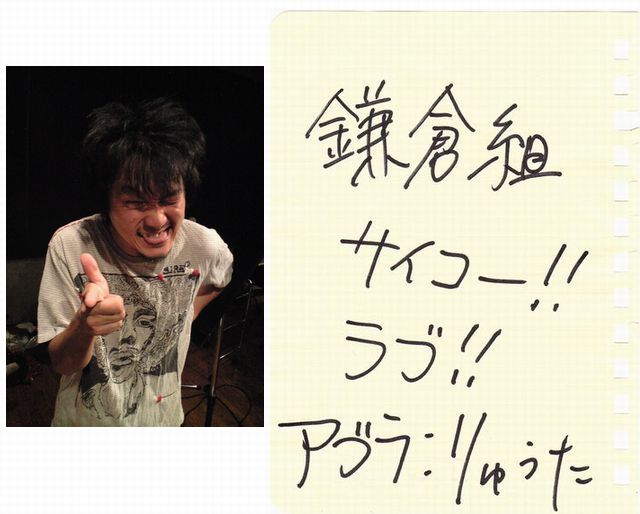 鎌倉組
サイコー!!
ラブ!!
アブラ:りゅうた